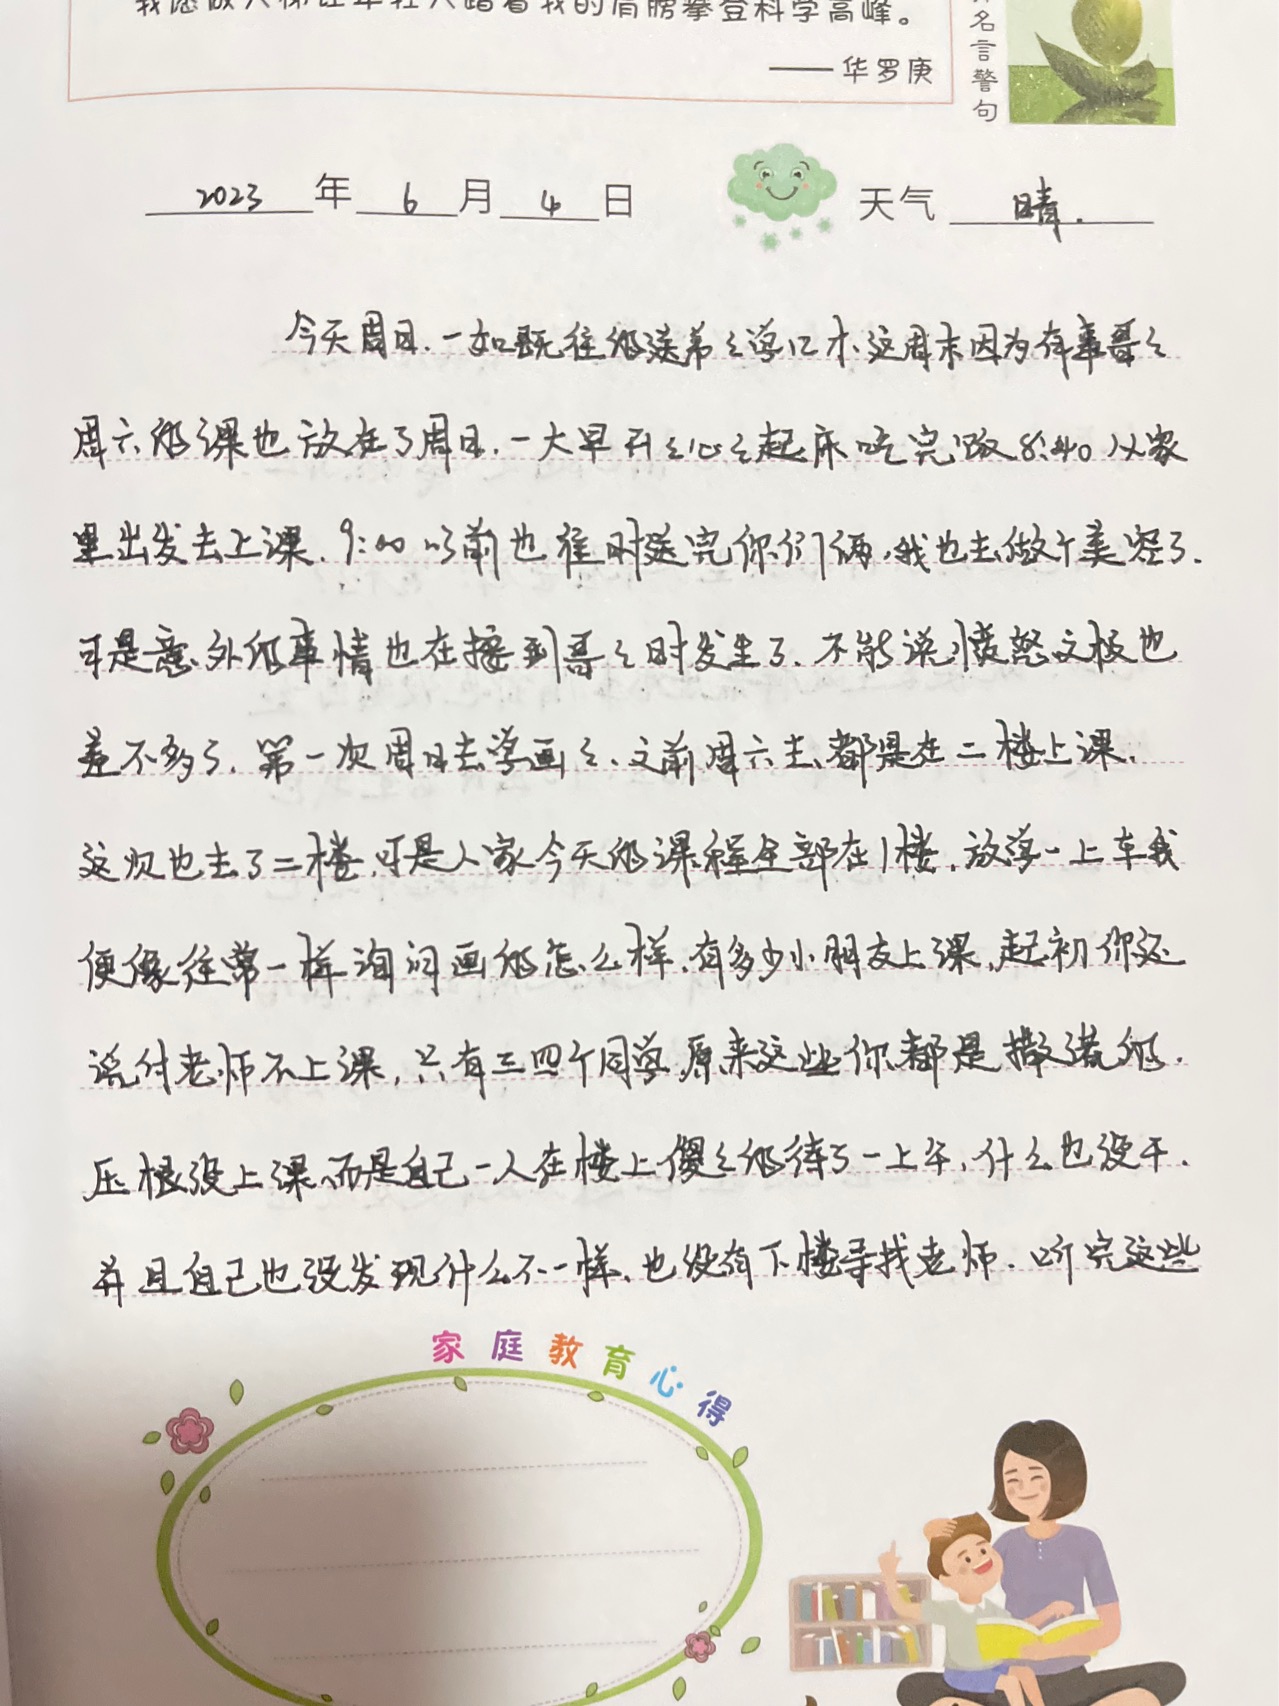 我愿做人梯让年轻人踏着我的肩膀攀登科学高峰。
——华罗庚
名言警句
2023年6月4日 天气 晴.
今天周日.一如既往的送弟々学口才.这周末因为有事哥々
周六的课也放在了周日.一大早开々心々起床吃完饭8:40从家
里出发去上课.9:00以前也准时送完你们俩,我也去做个美容了.
可是意外的事情也在接到哥々时发生了.不能说愤怒之极也
差不多了.第一次周日去学画々.之前周六去都是在二楼上课.
这次也去了二楼,可是人家今天的课程全部在1楼.放学一上车我
便像往常一样询问画的怎么样,有多少小朋友上课,起初你还
说付老师不上课,只有三四个同学,原来这些你都是撒谎的.
压根没上课,而是自己一人在楼上傻々的待了一上午,什么也没干.
并且自己也没发现什么不一样,也没有下楼寻找老师.听完这些
家庭教育心得